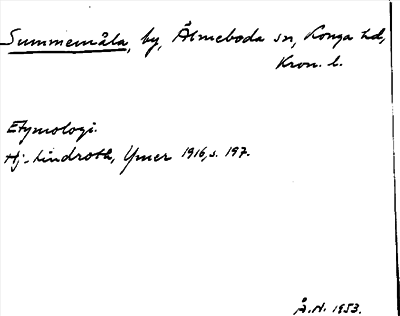 Summemåla, by, Älmeboda sn, Konga hd,
Kron. l.
Etymologi.
Hj. Lindroth, Ymer 1916, s. 197.
Å.N. 1953.